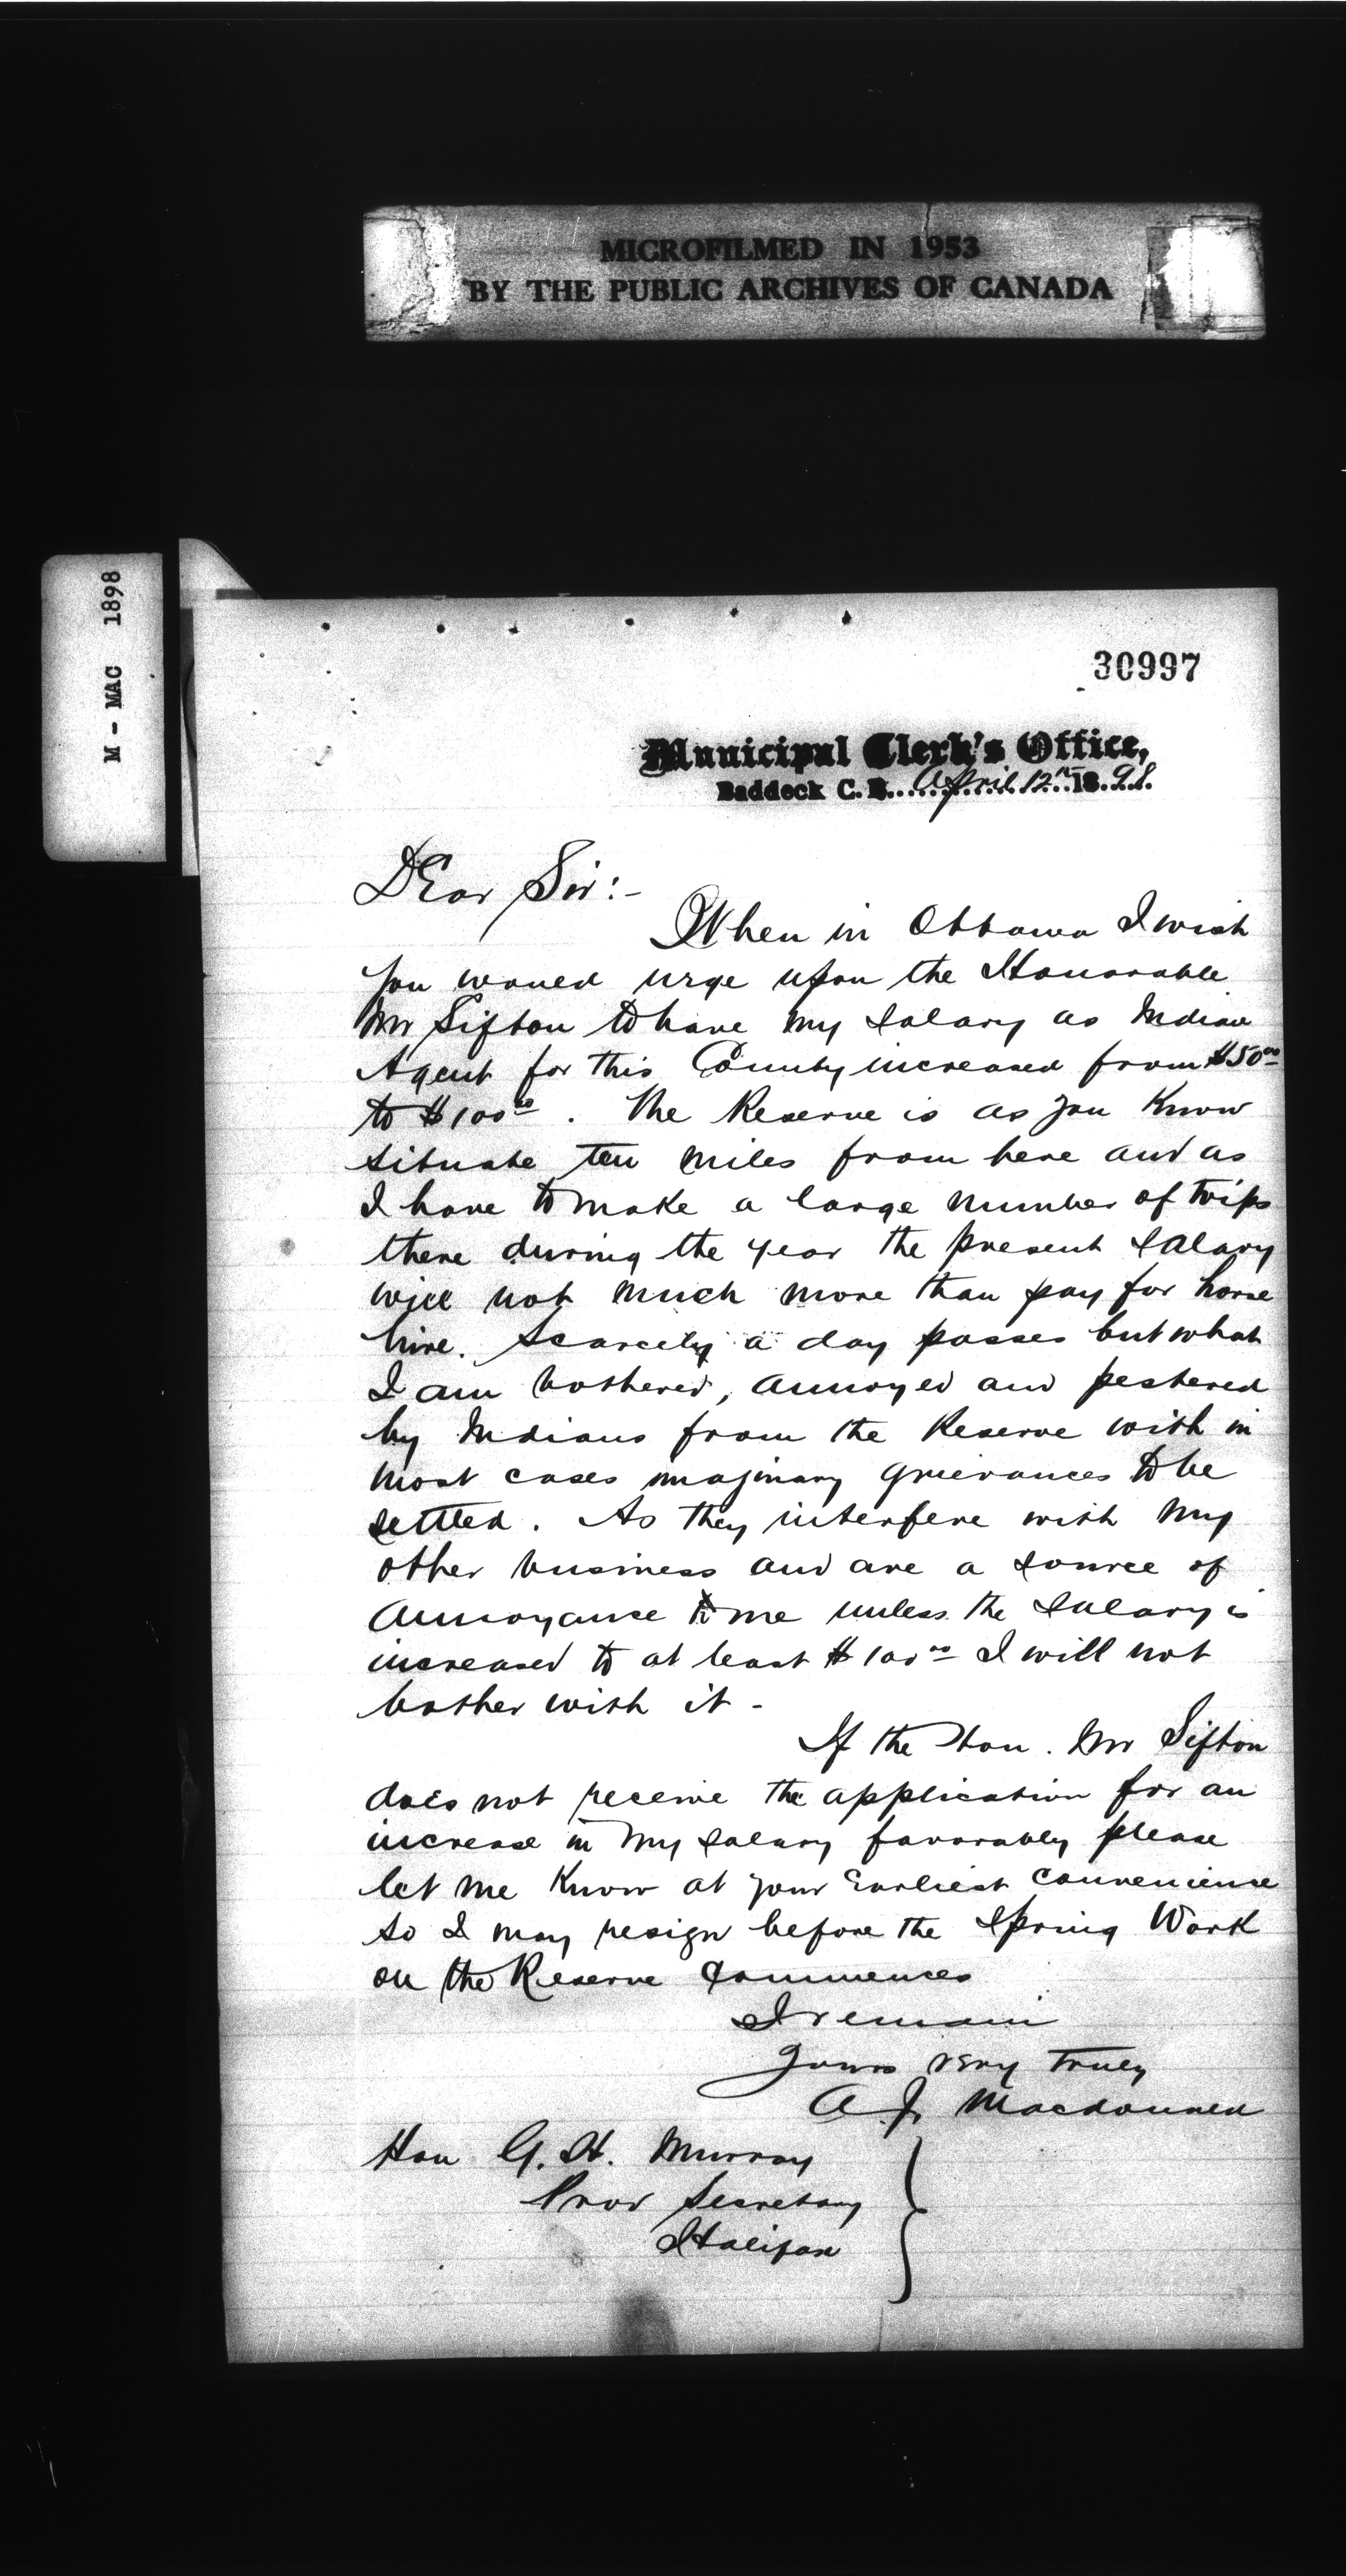 MICROFILMED IN 1953
BY THE PUBLIC ARCHIVES OF CANADA
M - MAC 1898
30997
Municipal Clerk's Office,
Baddeck C. B. April 12th 1898.
Dear Sir:-
When in Ottawa I wish
you would urge upon the Honorable
Mr Sifton to have my salary as Indian
Agent for this County increased from $50.00
to $100.00. The Reserve is as you know
situate ten miles from here and as
I have to make a large number of trips
there during the year the present salary
will not much more than pay for horse
hire. Scarcely a day passes but what
I am bothered, annoyed and pestered
by Indians from the Reserve with in
most cases imaginary grievances to be
settled. As they interfere with my
other business and are a source of
annoyance to me unless the salary is
increased to at least $100.00 I will not
bother with it -
If the Hon. Mr Sifton
does not receive the application for an
increase in my salary favorably please
let me know at your Earliest convenience
so I may resign before the Spring Work
on the Reserve commences
I remain
Yours very truly
A J Macdonald
Hon G. H. Murray
Prov Secretary
Halifax